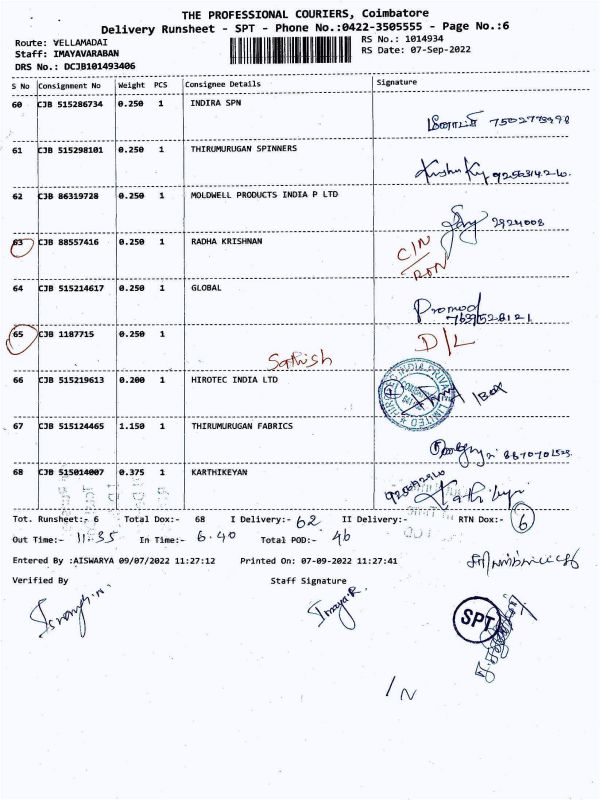 THE PROFESSIONAL COURIERS, Coimbatore
Delivery Runsheet - SPT - Phone No.:0422-3505555 - Page No.:6
Route: VELLAMADAI
RS No.: 1014934
Staff: IMAYAVARABAN
RS Date: 07-Sep-2022
DRS No.: DCJB101493406
S No Consignment No Weight PCS Consignee Details Signature
60 CJB 515286734 0.250 1 INDIRA SPN
61 CJB 515298101 0.250 1 THIRUMURUGAN SPINNERS
62 CJB 86319728 0.250 1 MOLDWELL PRODUCTS INDIA P LTD
2924008
63 CJB 88557416 0.250 1 RADHA KRISHNAN
C/N
RTN
64 CJB 515214617 0.250 1 GLOBAL
Promod
65 CJB 1187715 0.250 1
D/L
Sathish
66 CJB 515219613 0.200 1 HIROTEC INDIA LTD
1BOX
67 CJB 515124465 1.150 1 THIRUMURUGAN FABRICS
68 CJB 515014007 0.375 1 KARTHIKEYAN
Tot. Runsheet:- 6 Total Dox:- 68 I Delivery:- 62 II Delivery:- RTN Dox:- 6
Out Time:- 11.35 In Time:- 6.40 Total POD:- 46
Entered By :AISWARYA 09/07/2022 11:27:12 Printed On: 07-09-2022 11:27:41
Verified By Staff Signature
Imaya.R
SPT